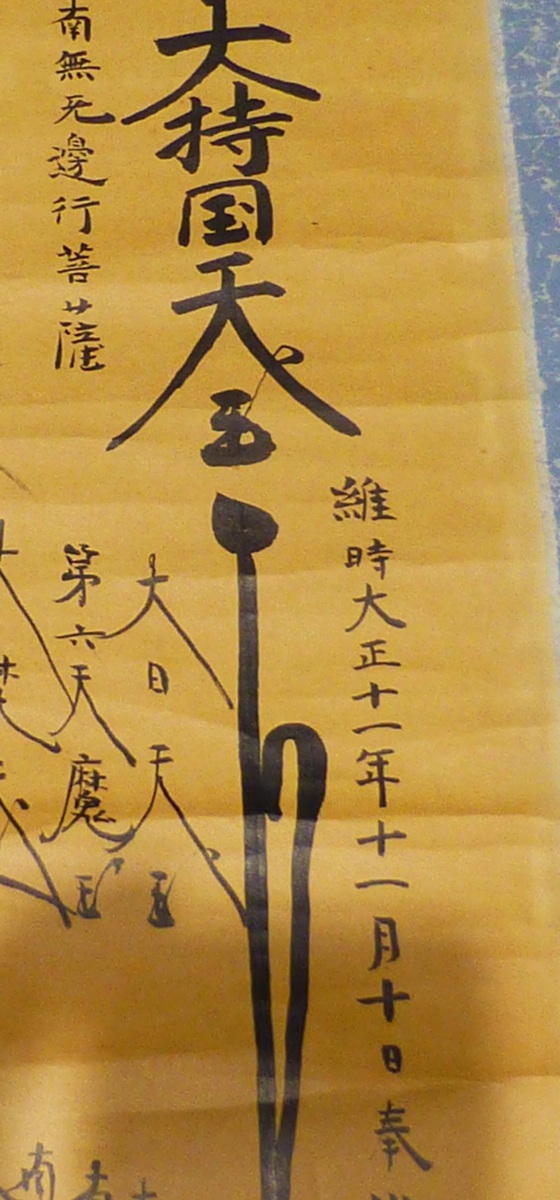 維時大正十一年十一月十日奉
大持国天玉
大日天玉
南無无邊行菩薩
第六天魔王